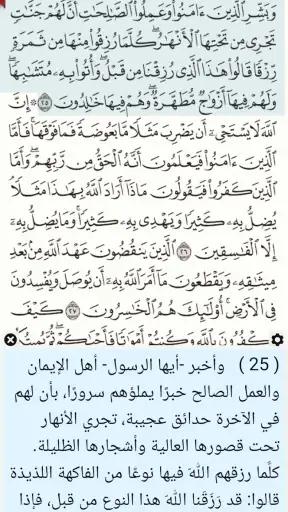 وَبَشِّرِ ٱلَّذِينَ ءَامَنُوا۟ وَعَمِلُوا۟ ٱلصَّـٰلِحَـٰتِ أَنَّ لَهُمْ جَنَّـٰتٍ
تَجْرِى مِن تَحْتِهَا ٱلْأَنْهَـٰرُ ۖ كُلَّمَا رُزِقُوا۟ مِنْهَا مِن ثَمَرَةٍ
رِّزْقًا ۙ قَالُوا۟ هَـٰذَا ٱلَّذِى رُزِقْنَا مِن قَبْلُ ۖ وَأُتُوا۟ بِهِۦ مُتَشَـٰبِهًا ۖ
وَلَهُمْ فِيهَآ أَزْوَٰجٌ مُّطَهَّرَةٌ ۖ وَهُمْ فِيهَا خَـٰلِدُونَ ٢٥ ۞ إِنَّ
ٱللَّهَ لَا يَسْتَحْىِۦٓ أَن يَضْرِبَ مَثَلًا مَّا بَعُوضَةً فَمَا فَوْقَهَا ۚ فَأَمَّا
ٱلَّذِينَ ءَامَنُوا۟ فَيَعْلَمُونَ أَنَّهُ ٱلْحَقُّ مِن رَّبِّهِمْ ۖ وَأَمَّا
ٱلَّذِينَ كَفَرُوا۟ فَيَقُولُونَ مَاذَآ أَرَادَ ٱللَّهُ بِهَـٰذَا مَثَلًا ۘ
يُضِلُّ بِهِۦ كَثِيرًا وَيَهْدِى بِهِۦ كَثِيرًا ۚ وَمَا يُضِلُّ بِهِۦٓ
إِلَّا ٱلْفَـٰسِقِينَ ٢٦ ٱلَّذِينَ يَنقُضُونَ عَهْدَ ٱللَّهِ مِنۢ بَعْدِ
مِيثَـٰقِهِۦ وَيَقْطَعُونَ مَآ أَمَرَ ٱللَّهُ بِهِۦٓ أَن يُوصَلَ وَيُفْسِدُونَ
فِى ٱلْأَرْضِ ۚ أُو۟لَـٰٓئِكَ هُمُ ٱلْخَـٰسِرُونَ ٢٧ كَيْفَ
تَكْفُرُونَ بِٱللَّهِ وَكُنتُمْ أَمْوَٰتًا فَأَحْيَـٰكُمْ ۖ ثُمَّ يُمِيتُكُمْ
( 25 ) وأخبر -أيها الرسول- أهل الإيمان
والعمل الصالح خبرًا يملؤهم سرورًا، بأن لهم
في الآخرة حدائق عجيبة، تجري الأنهار
تحت قصورها العالية وأشجارها الظليلة.
كلَّما رزقهم الله فيها نوعًا من الفاكهة اللذيذة
قالوا: قد رَزَقَنا الله هذا النوع من قبل، فإذا